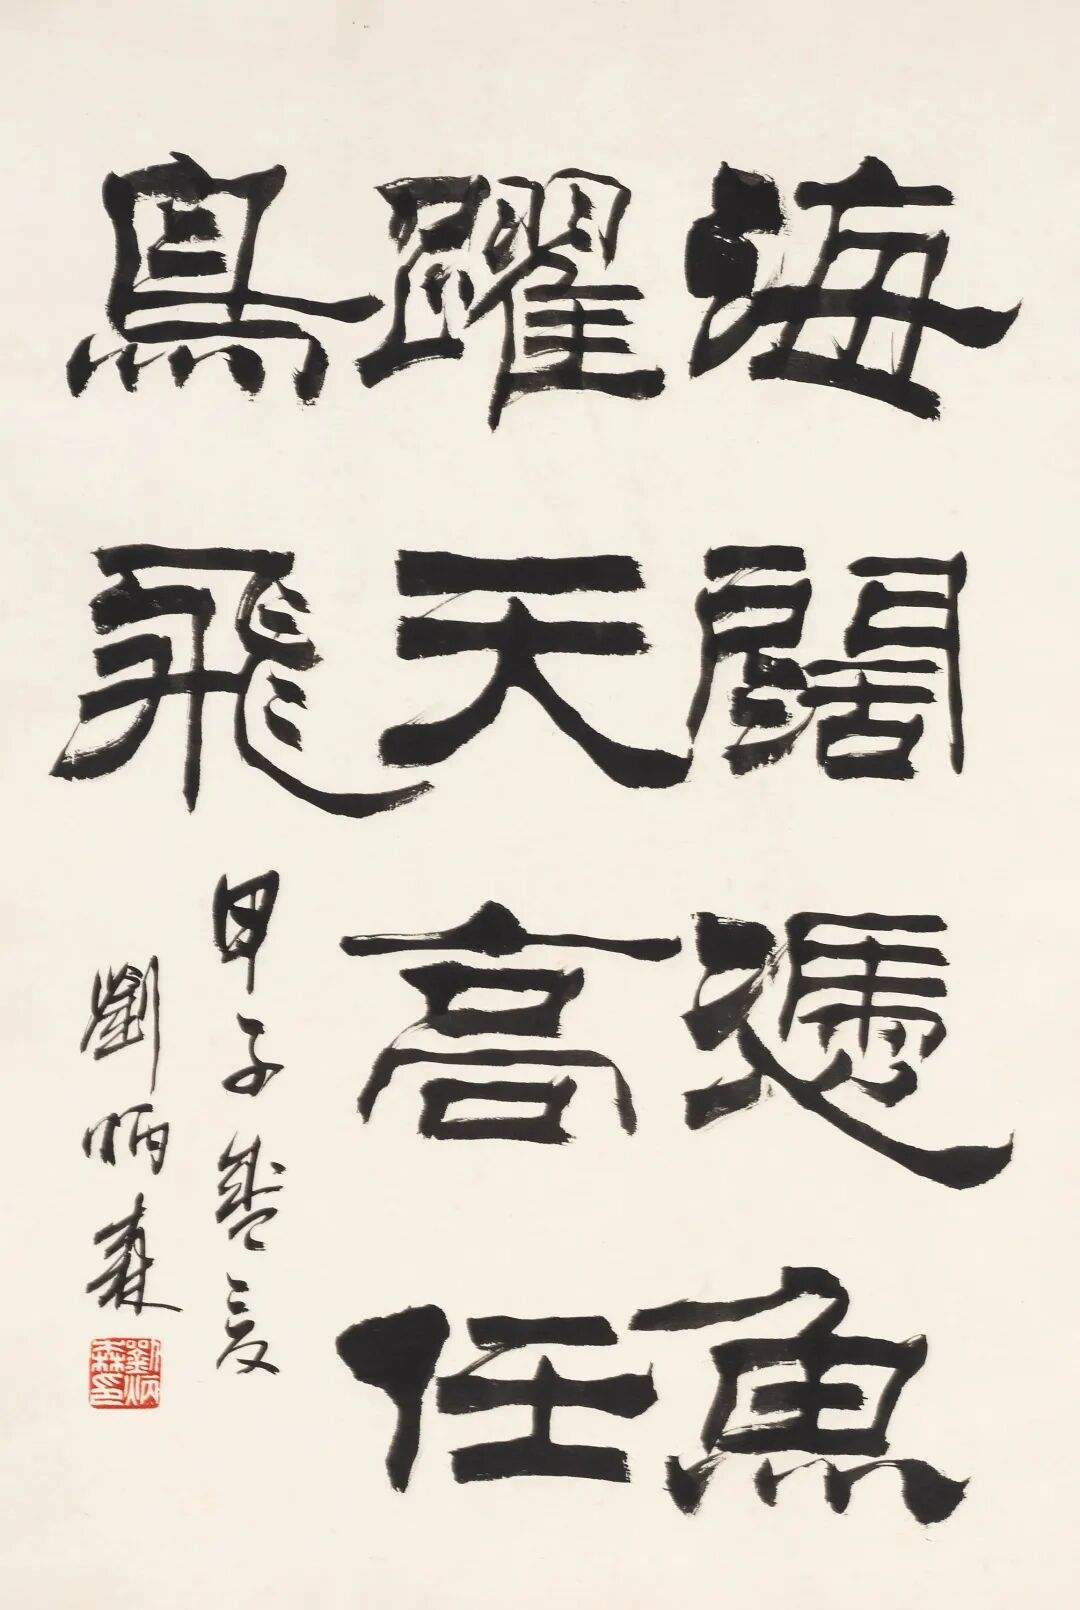 海闊憑魚
躍天高任
鳥飛
甲子盛夏
劉炳森
劉炳森印